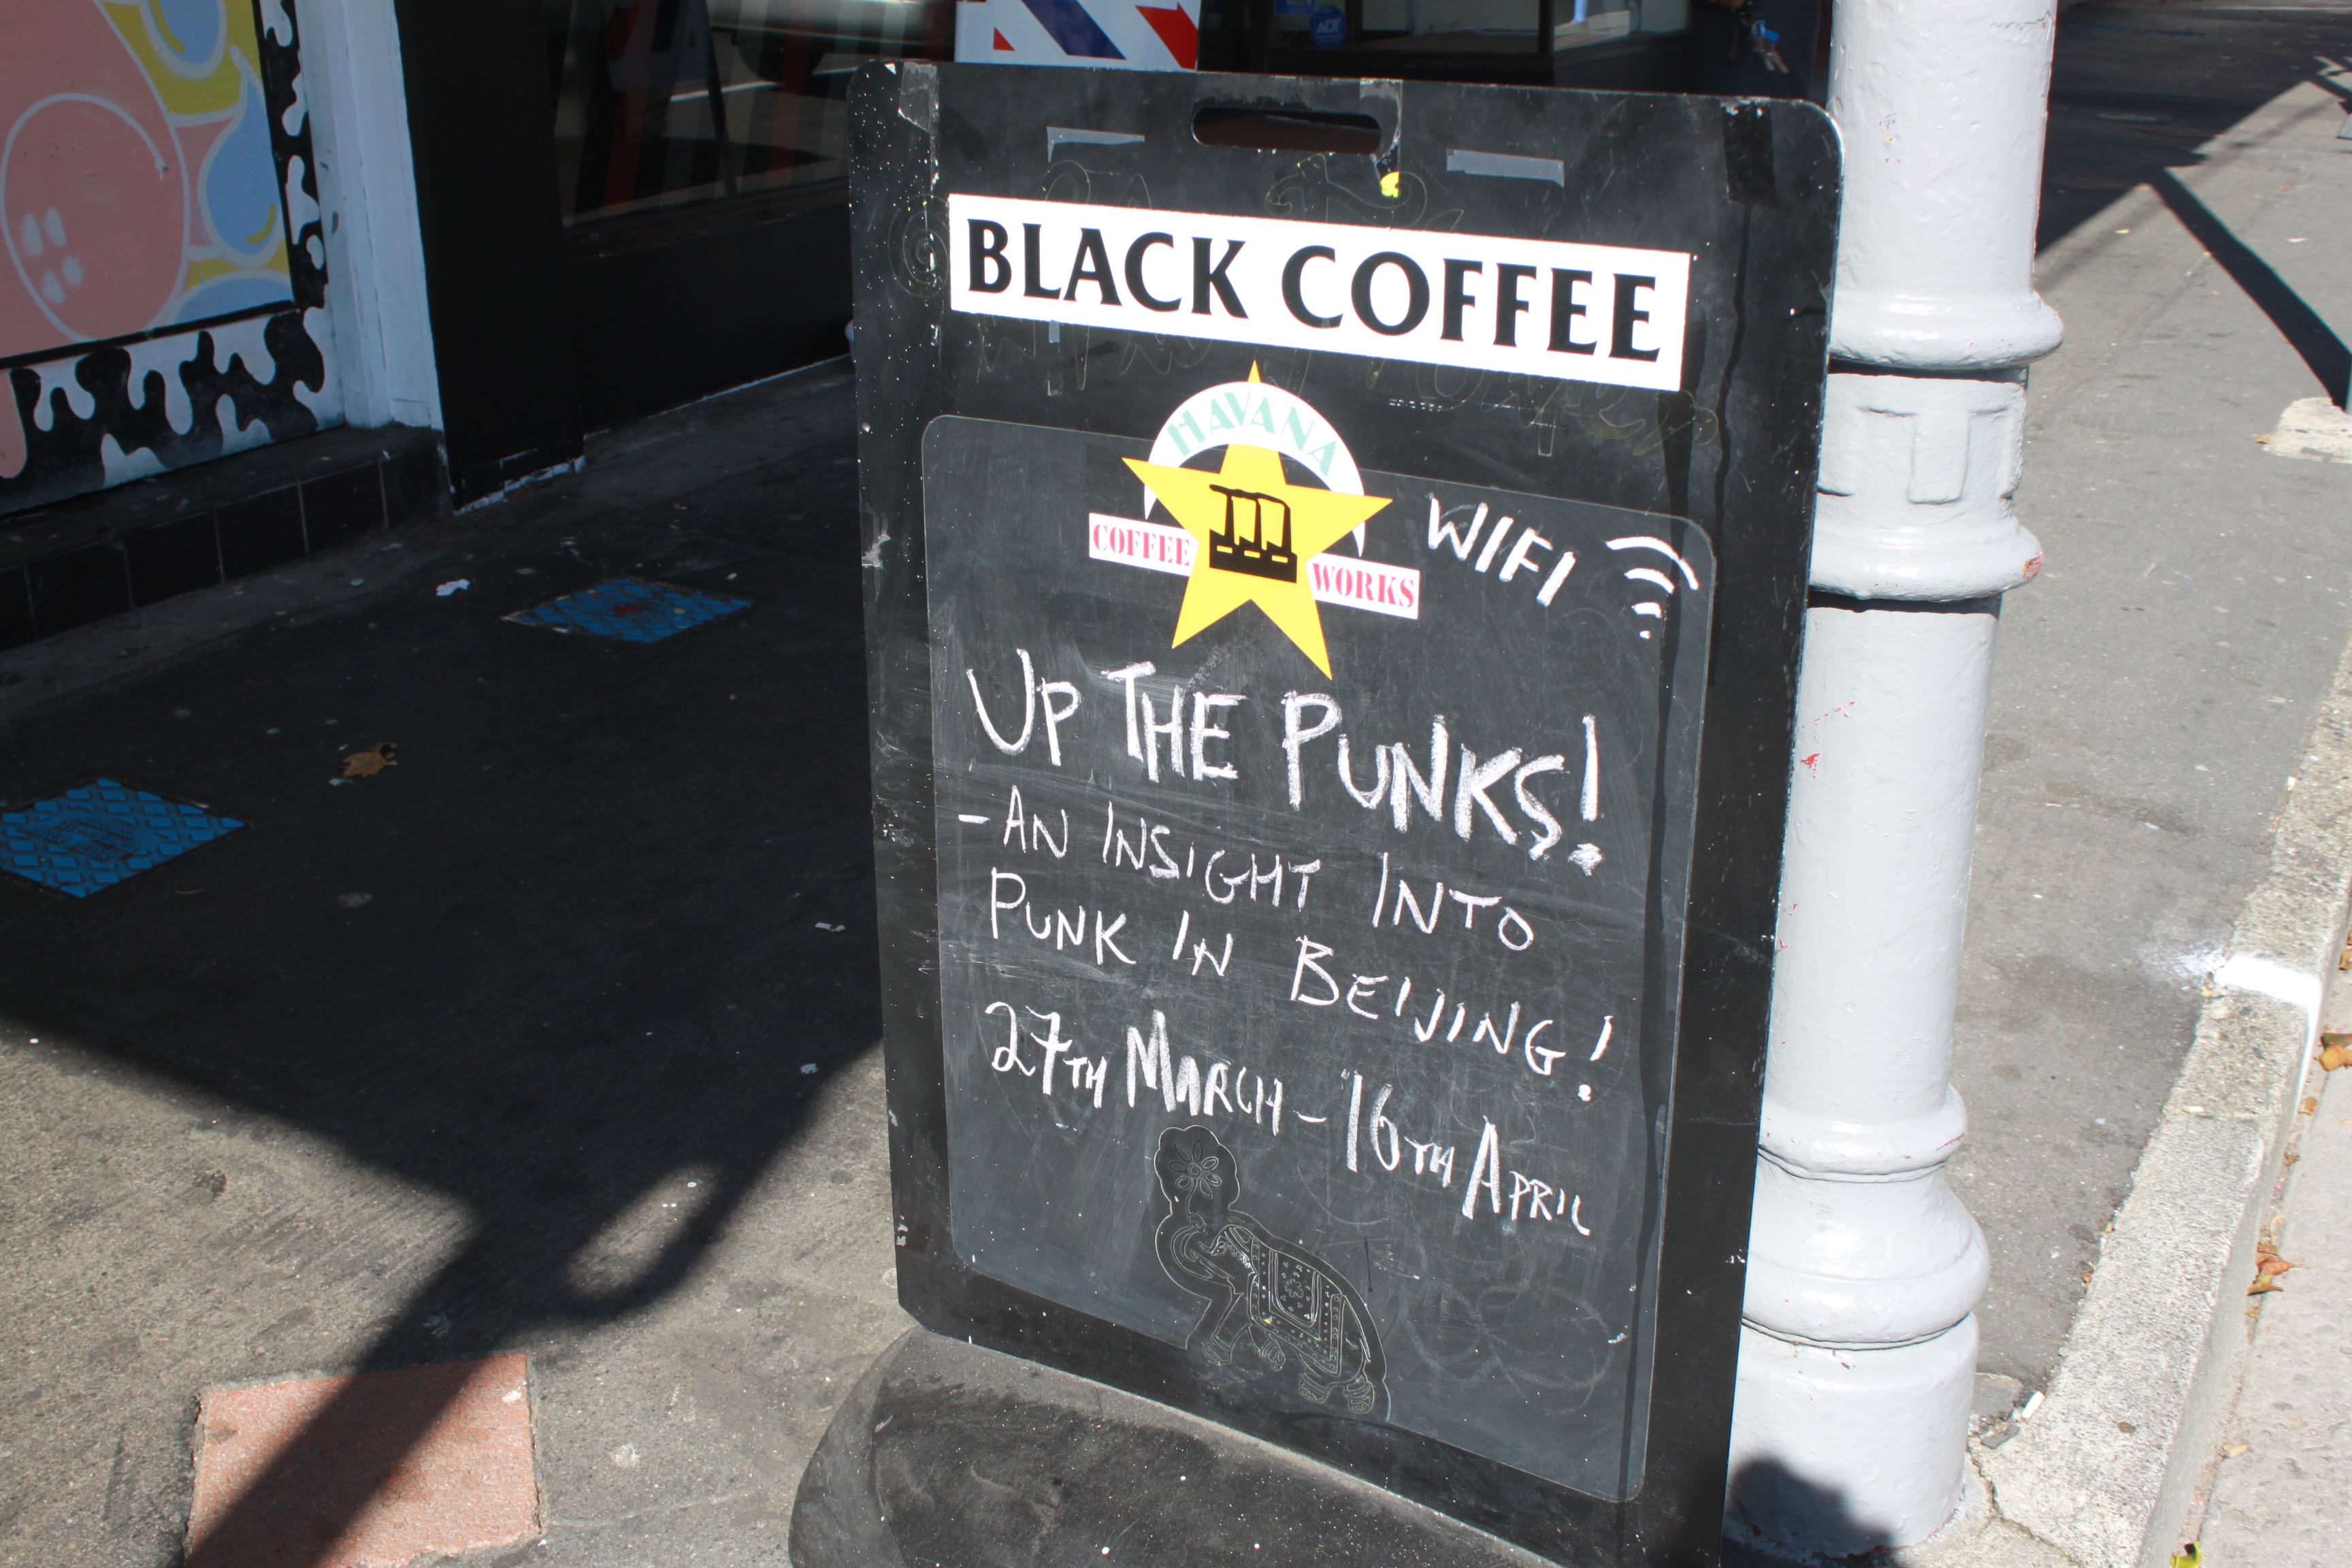 ADT
BLACK COFFEE
HAVANA
COFFEE WORKS
WIFI
UP THE PUNKS!
- AN INSIGHT INTO
PUNK IN BEIJING!
27TH MARCH - 16TH APRIL